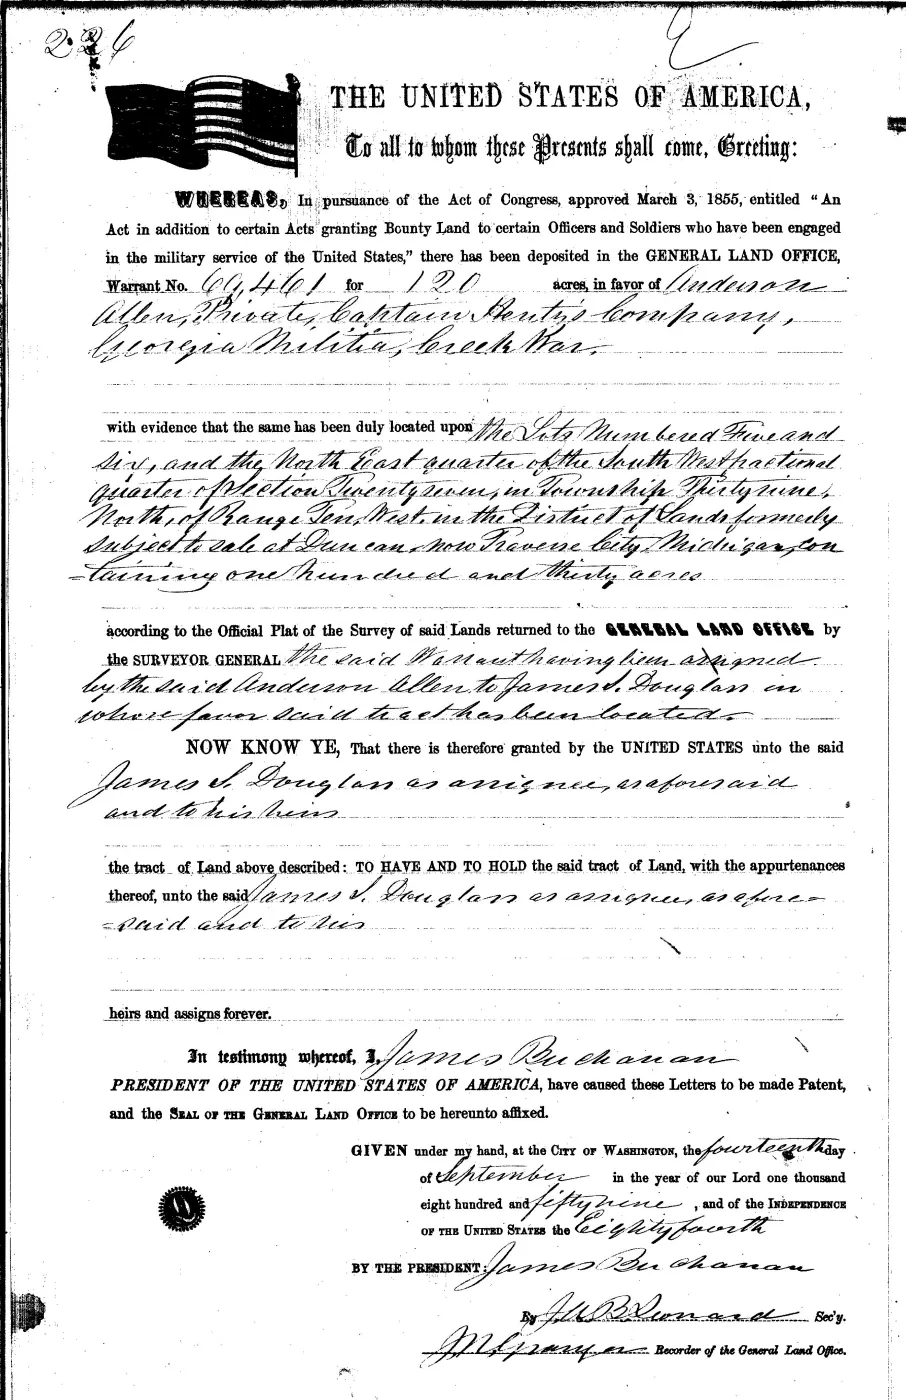 226
THE UNITED STATES OF AMERICA,
To all to whom these Presents shall come, Greeting:
WHEREAS, In pursuance of the Act of Congress, approved March 3, 1855, entitled "An
Act in addition to certain Acts granting Bounty Land to certain Officers and Soldiers who have been engaged
in the military service of the United States," there has been deposited in the GENERAL LAND OFFICE,
Warrant No. 69,461 for 120 acres, in favor of Anderson
Allen, Private, Captain Company,
Georgia Militia, Creek War.
with evidence that the same has been duly located upon the Lots Numbered Five and
six, and the North East quarter of the South West fractional
quarter of Section Twenty seven, in Township Thirty nine,
North, of Range Ten, West, in the District of Lands formerly
subject to sale at Duncan, now Traverse City, Michigan, con
=taining one hundred and thirty acres
according to the Official Plat of the Survey of said Lands returned to the GENERAL LAND OFFICE by
the SURVEYOR GENERAL the said Warrant having been assigned
by the said Anderson Allen to James S. Douglass in
whose favor said tract has been located.
NOW KNOW YE, That there is therefore granted by the UNITED STATES unto the said
James S. Douglass as assignee, as aforesaid
and to his heirs
the tract of Land above described: TO HAVE AND TO HOLD the said tract of Land, with the appurtenances
thereof, unto the said James S. Douglass as assignee, as afore=
=said and to his
heirs and assigns forever.
In testimony whereof, I, James Buchanan
PRESIDENT OF THE UNITED STATES OF AMERICA, have caused these Letters to be made Patent,
and the SEAL OF THE GENERAL LAND OFFICE to be hereunto affixed.
GIVEN under my hand, at the CITY OF WASHINGTON, the fourteenth day
of September in the year of our Lord one thousand
eight hundred and fifty nine, and of the INDEPENDENCE
OF THE UNITED STATES the Eighty fourth
BY THE PRESIDENT: James Buchanan
By J. B. Leonard Sec'y.
Recorder of the General Land Office.